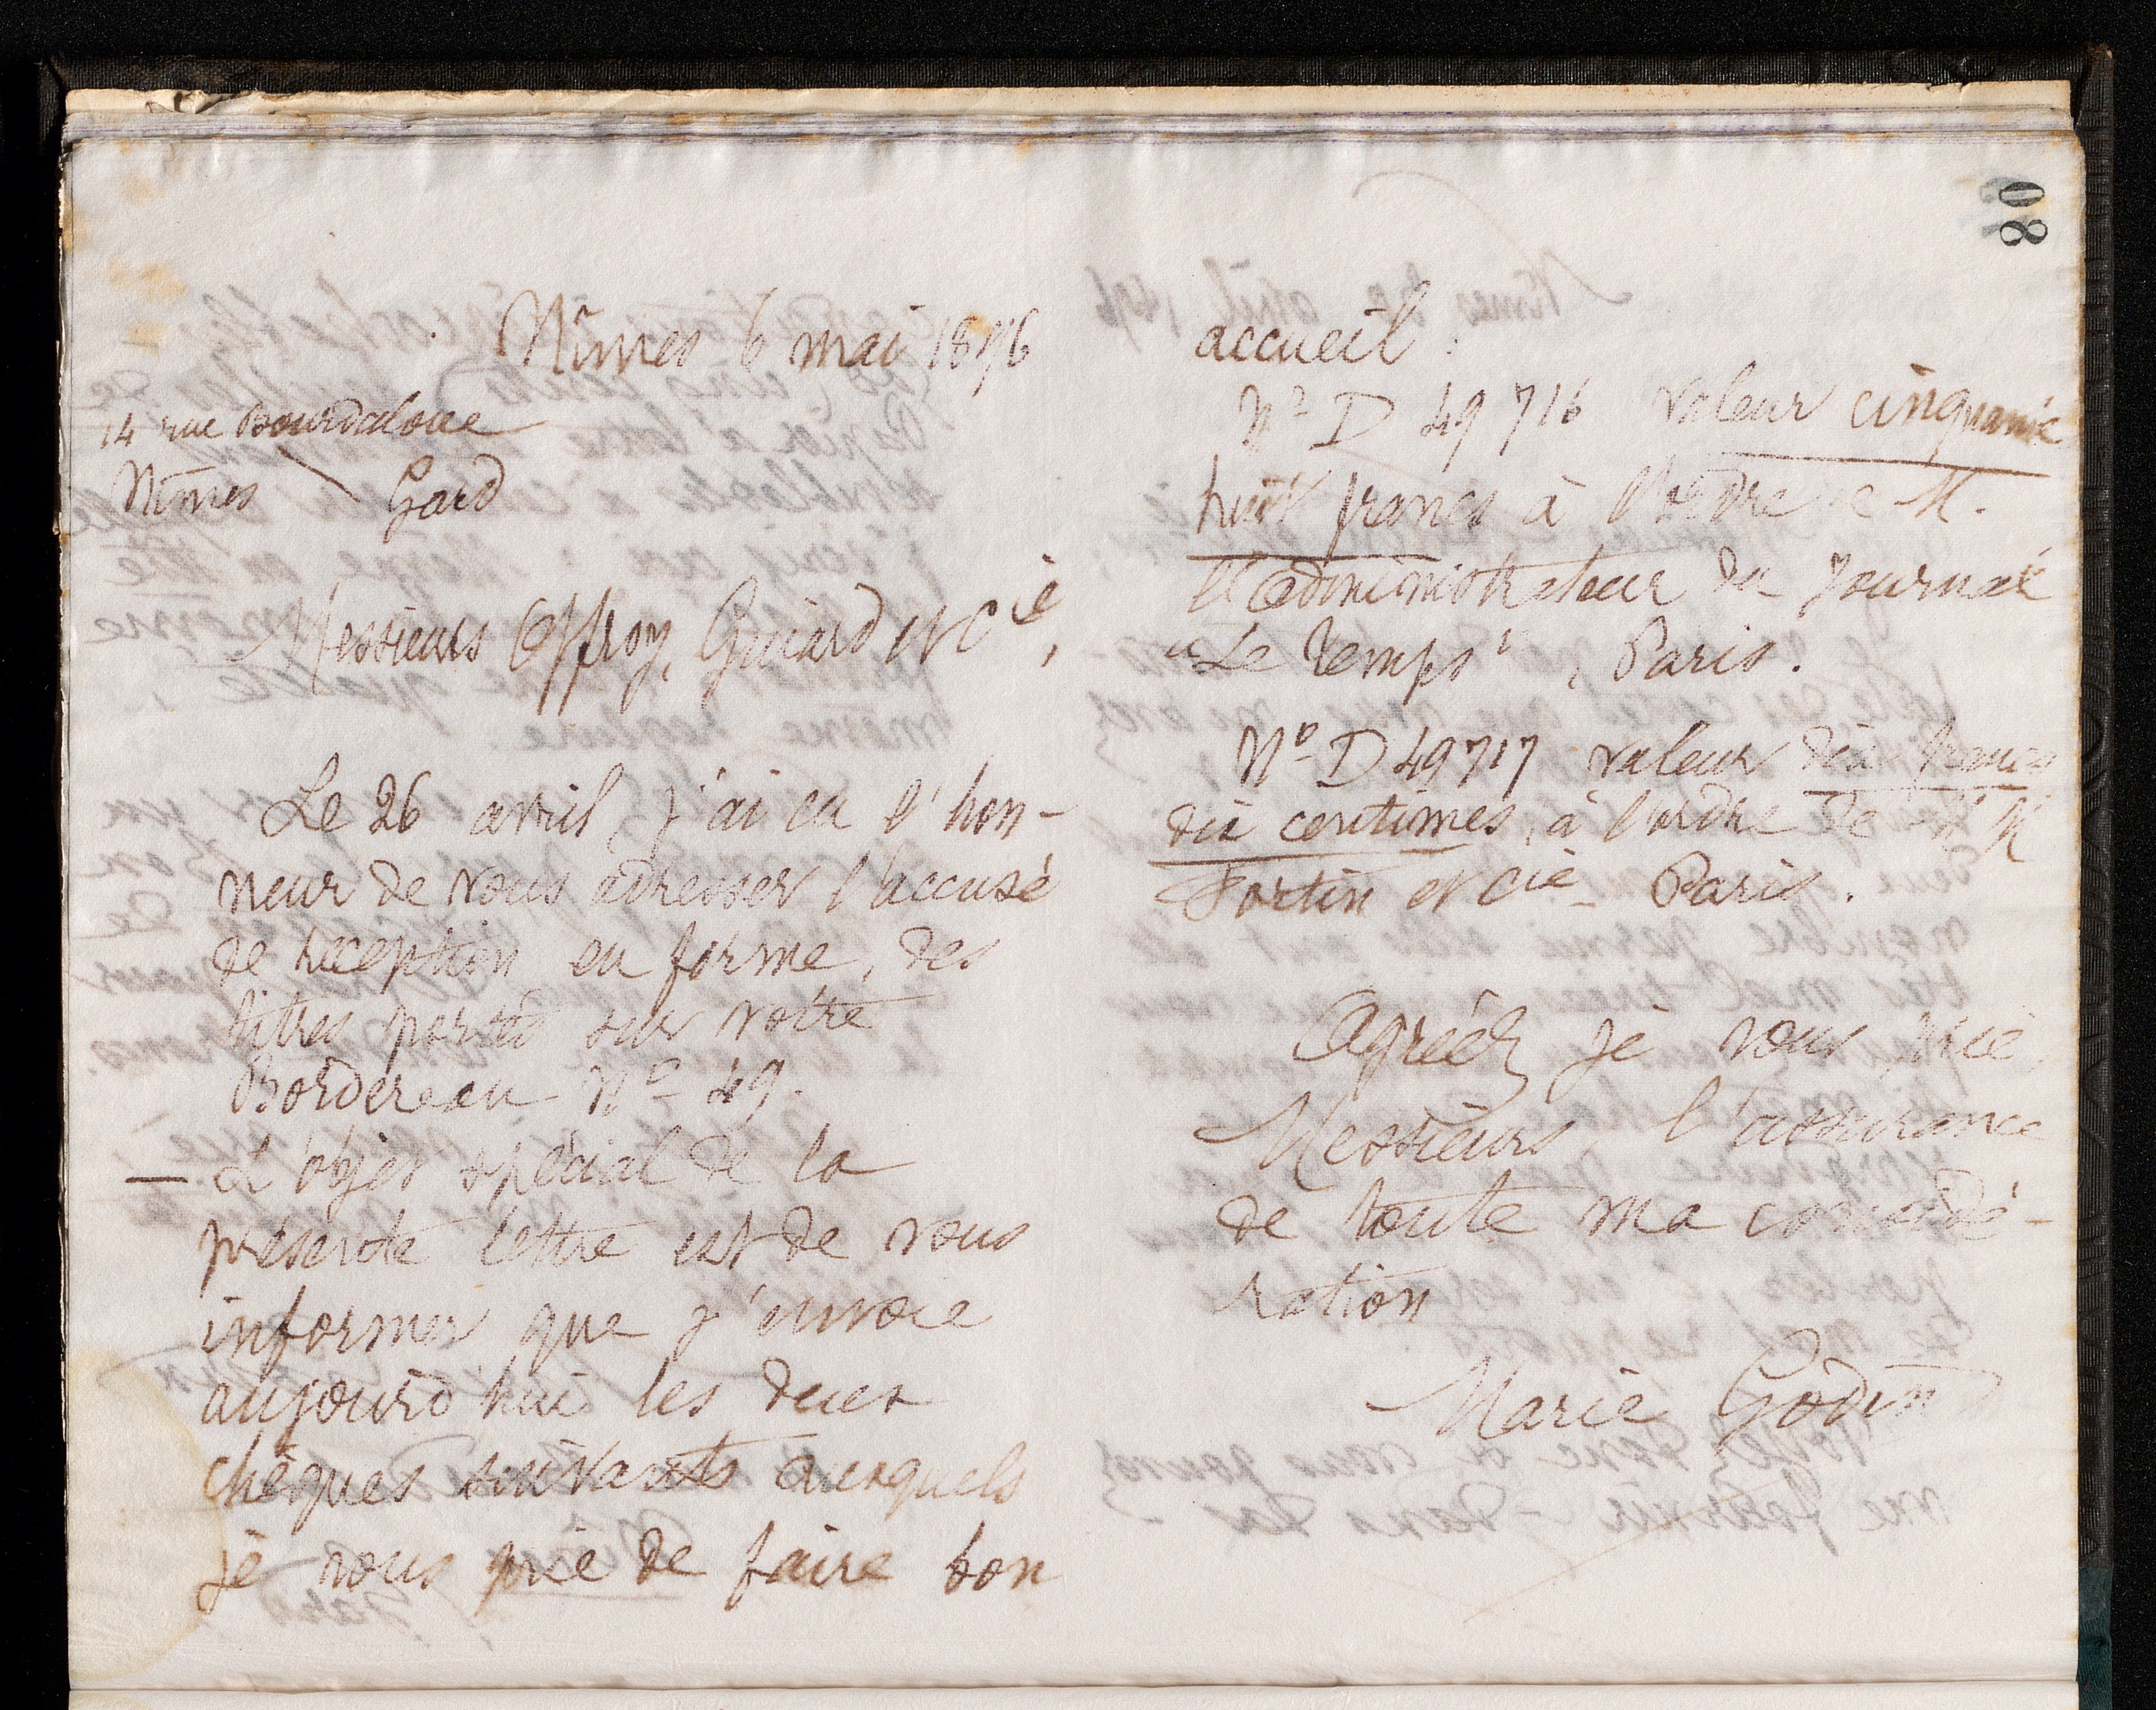 80
Nîmes 6 mai 1896
14 rue Bourdaloue
Nîmes Gard
Messieurs Offroy, Guiard et Cie,
Le 26 avril, j'ai eu l'hon-
neur de vous adresser l'accusé
de réception en forme, des
titres portés sur votre
Bordereau No 49.
— L'objet spécial de la
présente lettre est de vous
informer que j'envoie
aujourd'hui les deux
chèques suivants auxquels
je vous prie de faire bon
accueil :
No D 49 716 valeur cinquante
huit francs à l'ordre de M.
l'administrateur du Journal
"Le Temps", Paris.
No D 49717 valeur dix francs
dix centimes, à l'ordre de MM
Fortin et Cie - Paris.
Agréez je vous prie,
Messieurs, l'assurance
de toute ma considé-
ration
Marie Godin